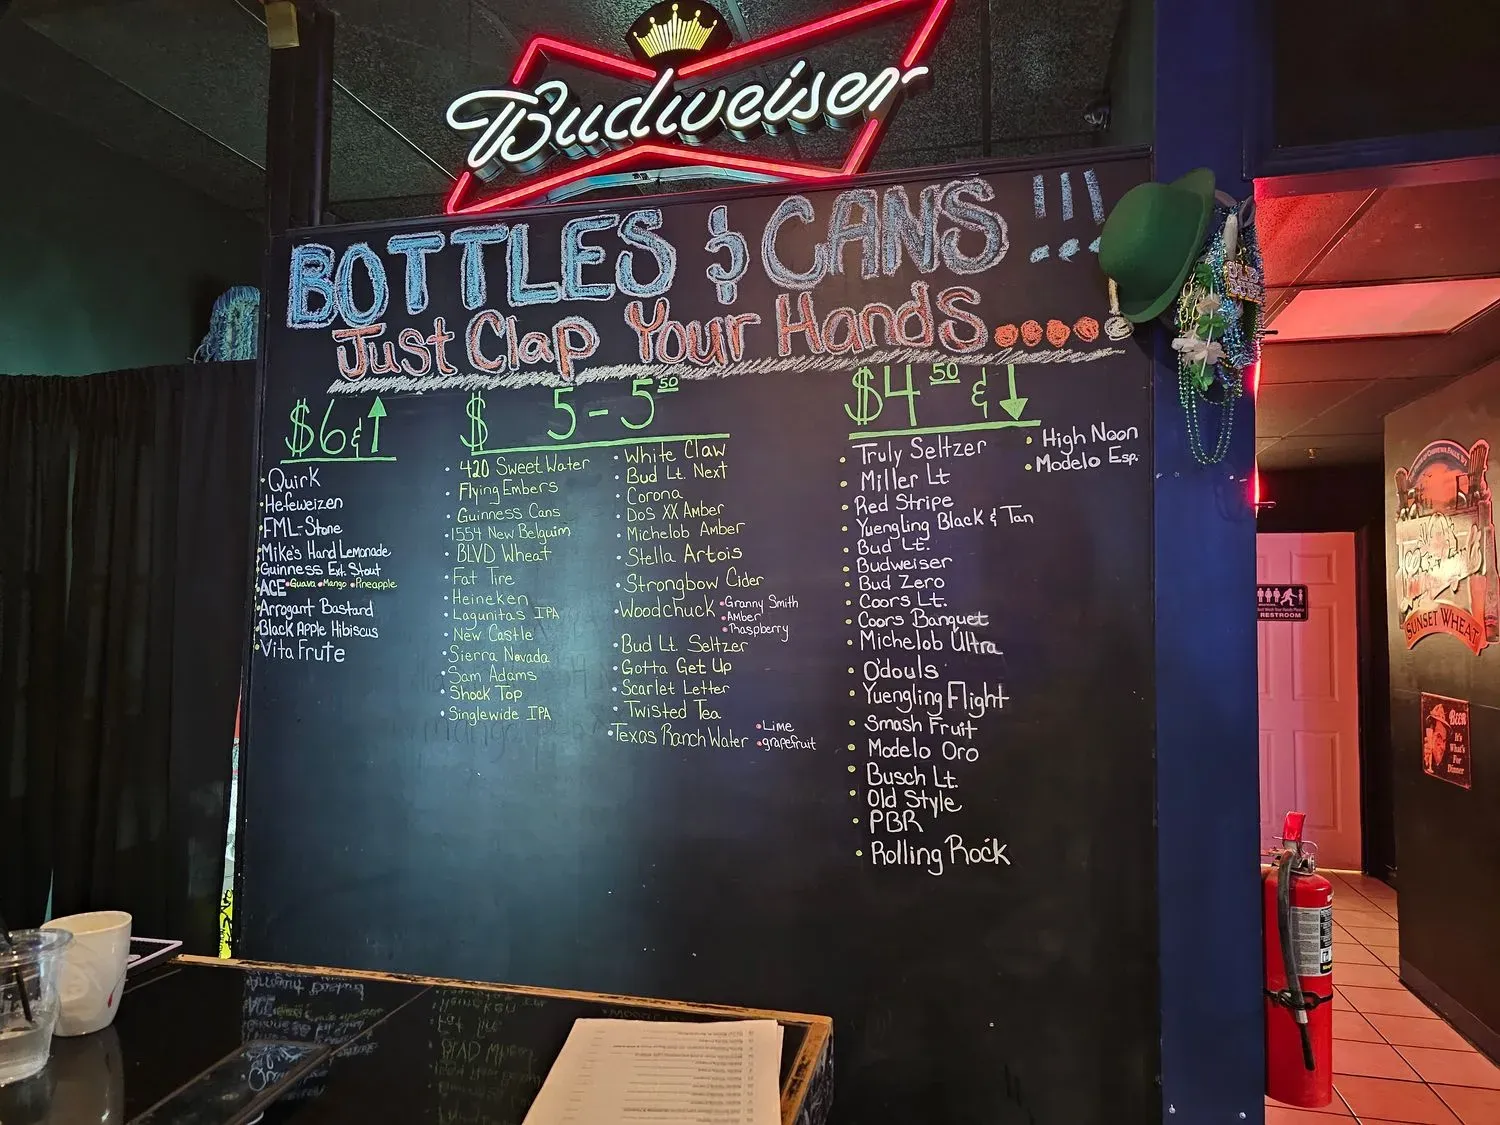 Budweiser
BOTTLES & CANS!!!
Just Clap Your Hands....
$6 &
Quirk
Hefeweizen
FML-Stone
Mike's Hand Lemonade
Guinness Ext. Stout
ACE •Guava •Mango •Pineapple
Arrogant Bastand
Black Apple Hibiscus
Vita Frute
$ 5-5 50
420 Sweet Water
Flying Embers
Guinness Cans
1554 New Belguim
BLVD Wheat
Fat Tire
Heineken
Lagunitas IPA
New Castle
Sierra Nevada
Sam Adams
Shock Top
Singlewide IPA
White Claw
Bud Lt. Next
Corona
Dos XX Amber
Michelob Amber
Stella Artois
Strongbow Cider
Woodchuck •Granny Smith
•Amber
•Raspberry
Bud Lt. Seltzer
Gotta Get Up
Scarlet Letter
Twisted Tea
Texas Ranch Water •Lime
•grapefruit
$4 50 &
Truly Seltzer
Miller Lt
Red Stripe
Yuengling Black & Tan
Bud Lt.
Budweiser
Bud Zero
Coors Lt.
Coors Banquet
Michelob Ultra
O'douls
Yuengling Flight
Smash Fruit
Modelo Oro
Busch Lt.
Old Style
PBR
Rolling Rock
High Noon
Modelo Esp.
RESTROOM
SUNSET WHEAT
BEER
It's
What's
For
Dinner